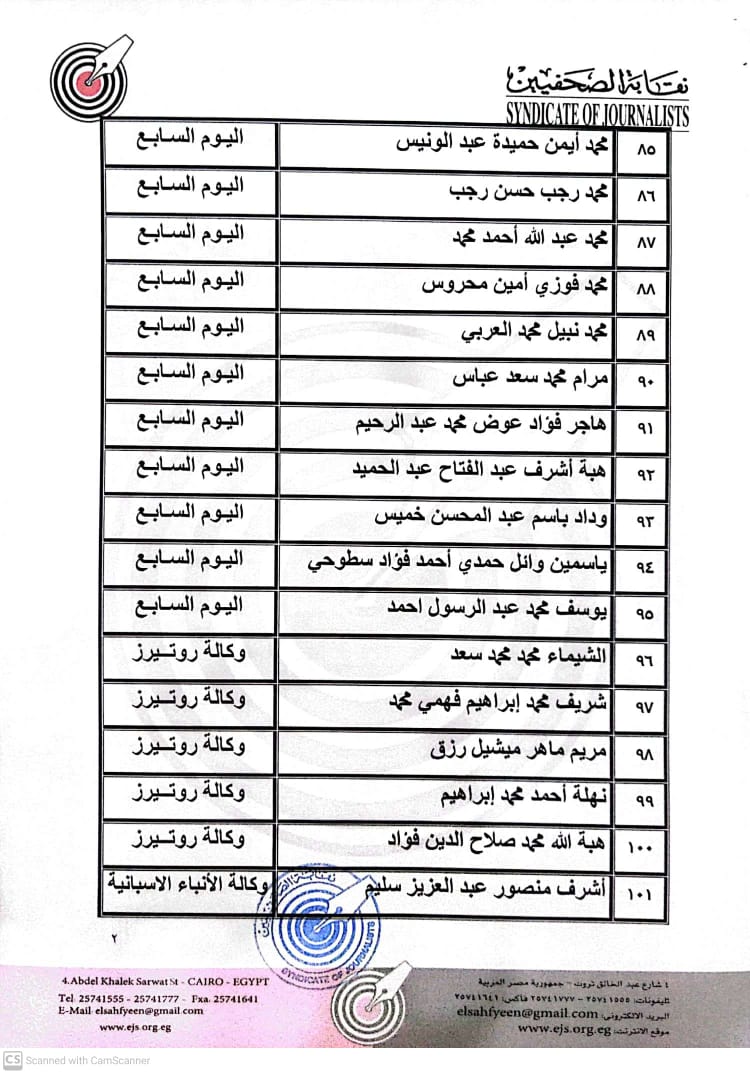 نقابة الصحفيين
SYNDICATE OF JOURNALISTS
٨٥ محمد أيمن حميدة عبد الونيس اليوم السابع
٨٦ محمد رجب حسن رجب اليوم السابع
٨٧ محمد عبد الله أحمد محمد اليوم السابع
٨٨ محمد فوزي أمين محروس اليوم السابع
٨٩ محمد نبيل محمد العربي اليوم السابع
٩٠ مرام محمد سعد عباس اليوم السابع
٩١ هاجر فؤاد عوض محمد عبد الرحيم اليوم السابع
٩٢ هبة أشرف عبد الفتاح عبد الحميد اليوم السابع
٩٣ وداد باسم عبد المحسن خميس اليوم السابع
٩٤ ياسمين وائل حمدي أحمد فؤاد سطوحي اليوم السابع
٩٥ يوسف محمد عبد الرسول احمد اليوم السابع
٩٦ الشيماء محمد محمد سعد وكالة روتيرز
٩٧ شريف محمد إبراهيم فهمي محمد وكالة روتيرز
٩٨ مريم ماهر ميشيل رزق وكالة روتيرز
٩٩ نهلة أحمد محمد إبراهيم وكالة روتيرز
١٠٠ هبة الله محمد صلاح الدين فؤاد وكالة روتيرز
١٠١ أشرف منصور عبد العزيز سليم وكالة الأنباء الاسبانية
نقابة الصحفيين
SYNDICATE OF JOURNALISTS
٢
٤ شارع عبد الخالق ثروت - جمهورية مصر العربية
تليفونات: ٢٥٧٤١٥٥٥ - ٢٥٧٤١٧٧٧ فاكس: ٢٥٧٤١٦٤١
البريد الالكترونى: elsahfyeen@gmail.com
موقع الانترنت: www.ejs.org.eg
4.Abdel Khalek Sarwat St - CAIRO - EGYPT
Tel: 25741555 - 25741777 - Fxa. 25741641
E-Mail: elsahfyeen@gmail.com
www.ejs.org.eg
CS Scanned with CamScanner